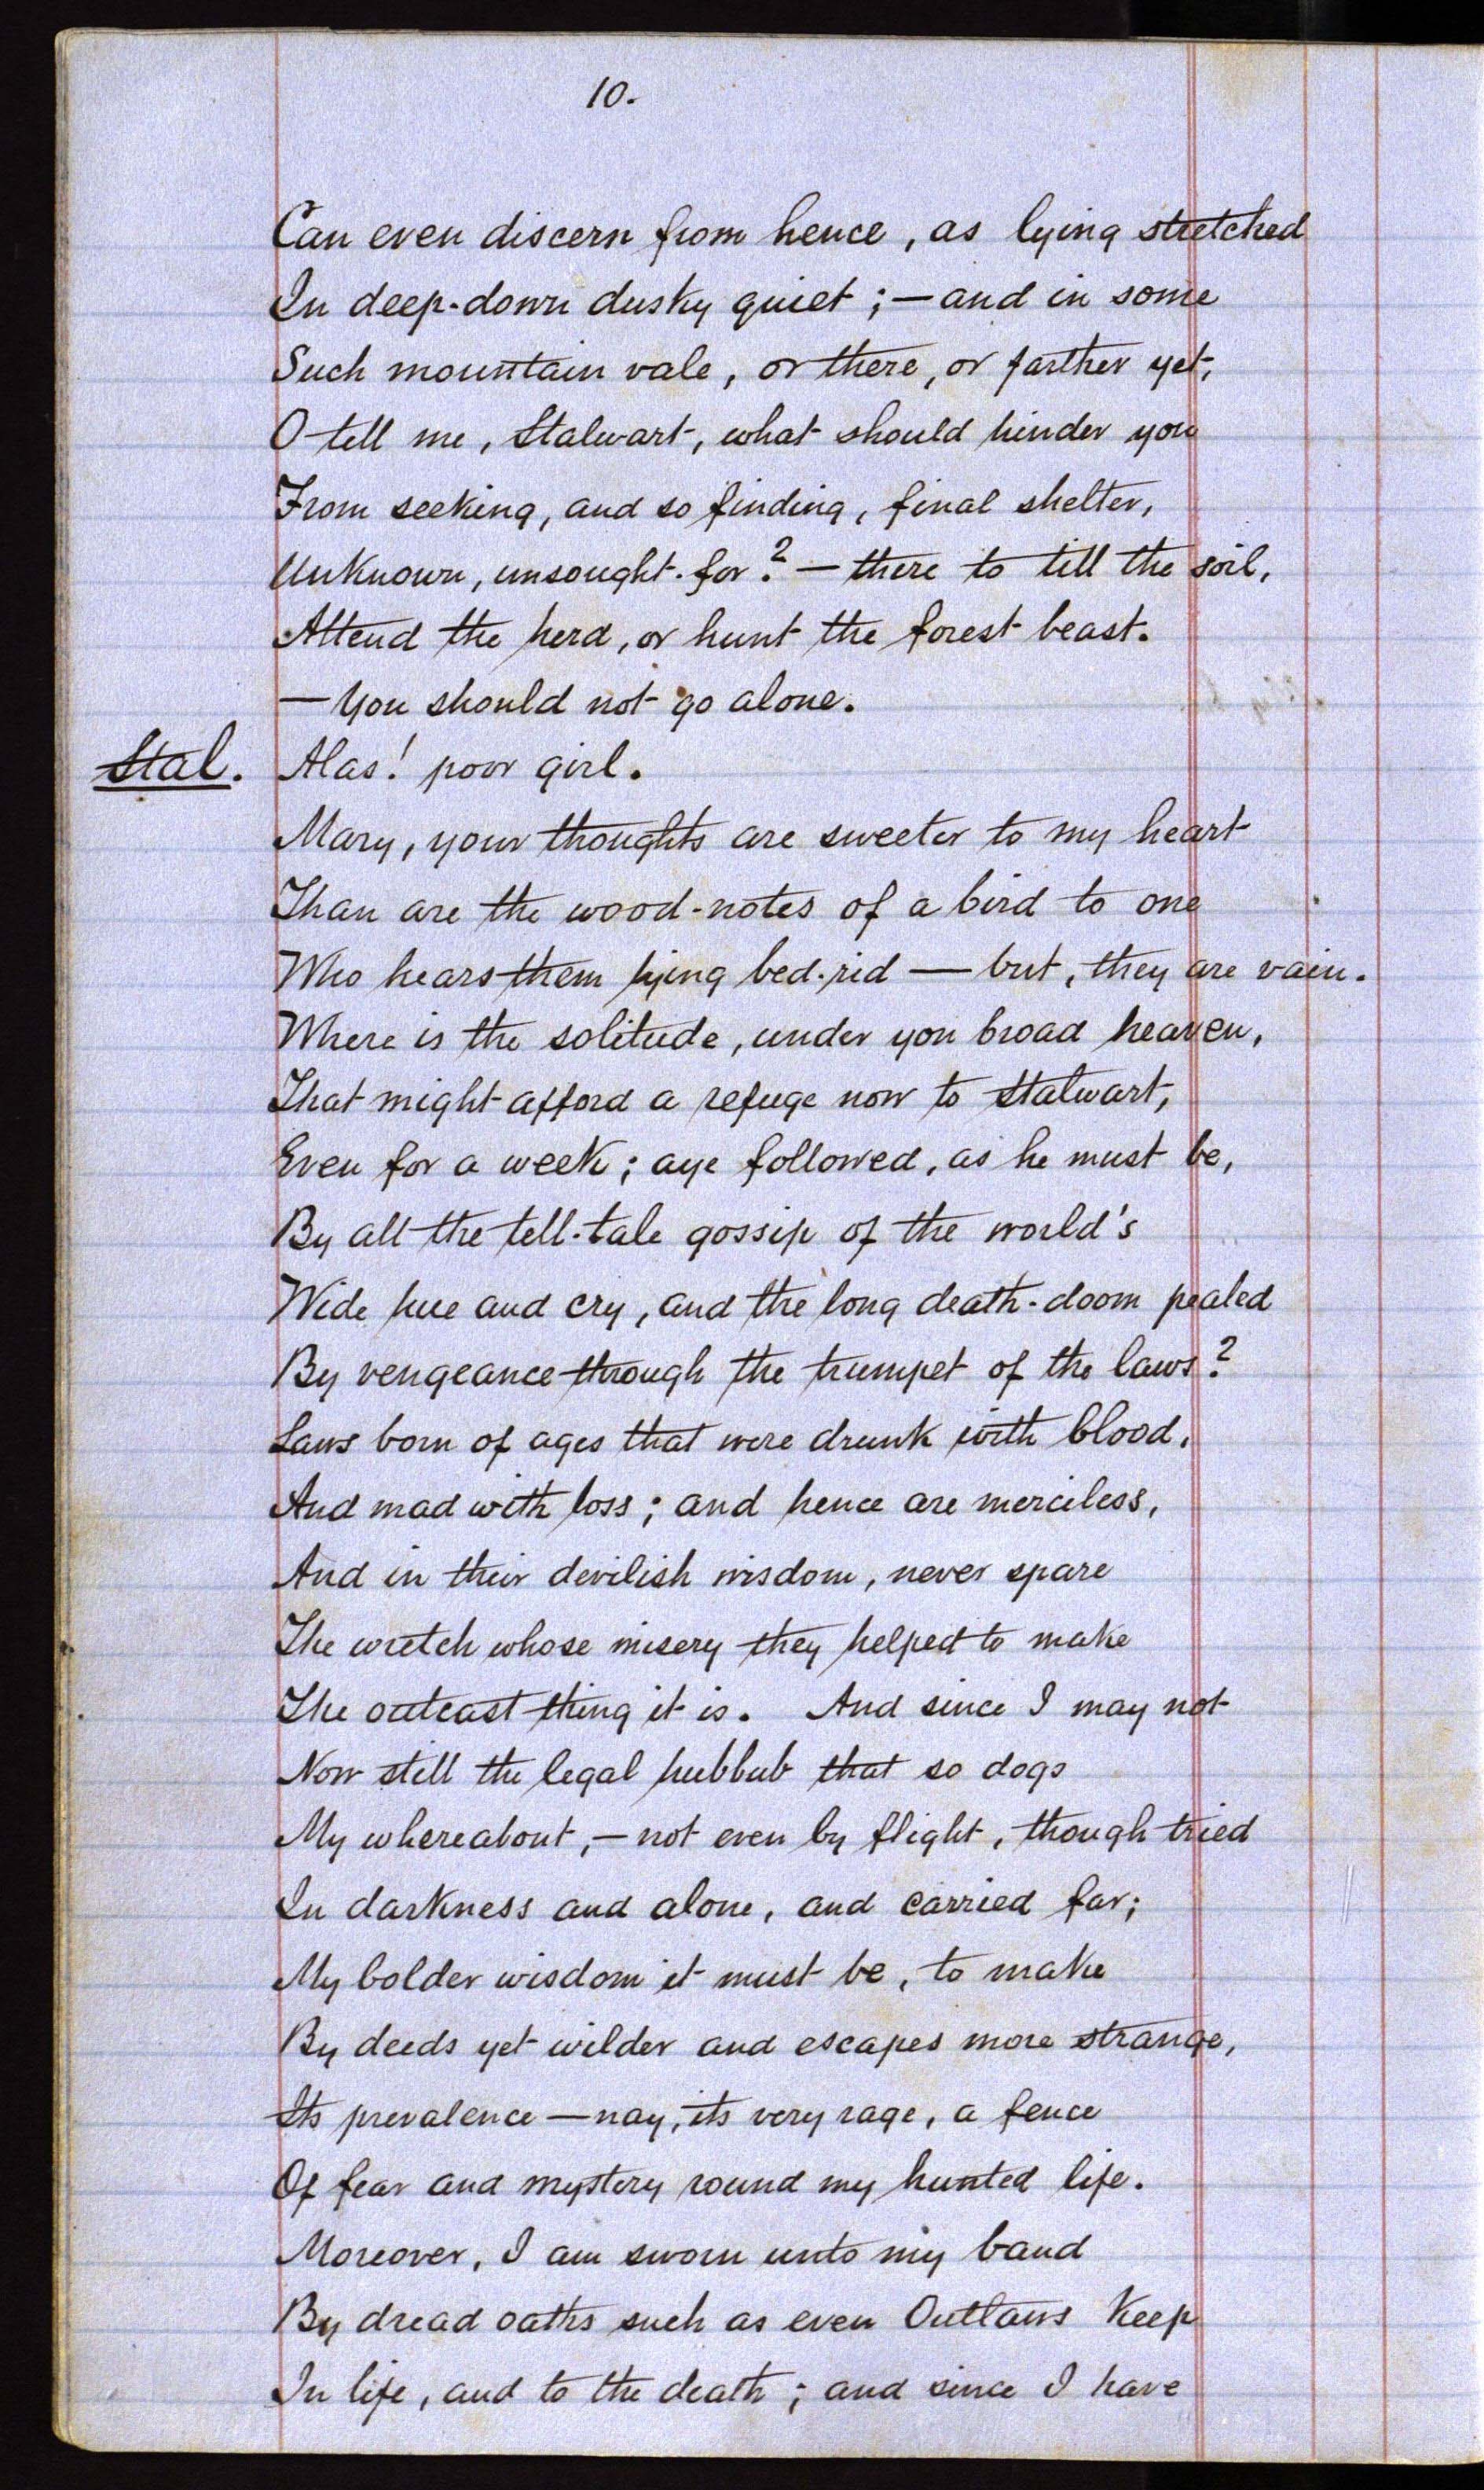 10.
Can even discern from hence, as lying stretched
In deep-down dusky quiet; — and in some
Such mountain vale, or there, or farther yet,
O tell me, Stalwart, what should hinder you
From seeking, and so finding, final shelter,
Unknown, unsought-for? — there to till the soil,
Attend the herd, or hunt the forest beast.
— You should not go alone.
Stal. Alas! poor girl.
Mary, your thoughts are sweeter to my heart
Than are the wood-notes of a bird to one
Who hears them lying bed-rid — but, they are vain.
Where is the solitude, under yon broad heaven,
That might afford a refuge now to Stalwart,
Even for a week; aye followed, as he must be,
By all the tell-tale gossip of the world's
Wide hue and cry, and the long death-doom pealed
By vengeance through the trumpet of the laws?
Laws born of ages that were drunk with blood,
And mad with loss; and hence are merciless,
And in their devilish wisdom, never spare
The wretch whose misery they helped to make
The outcast thing it is. And since I may not
Now still the legal hubbub that so dogs
My whereabout, — not even by flight, though tried
In darkness and alone, and carried far;
My bolder wisdom it must be, to make
By deeds yet wilder and escapes more strange,
Its prevalence — nay, its very rage, a fence
Of fear and mystery round my hunted life.
Moreover, I am sworn unto my band
By dread oaths such as even Outlaws keep
In life, and to the death; and since I have